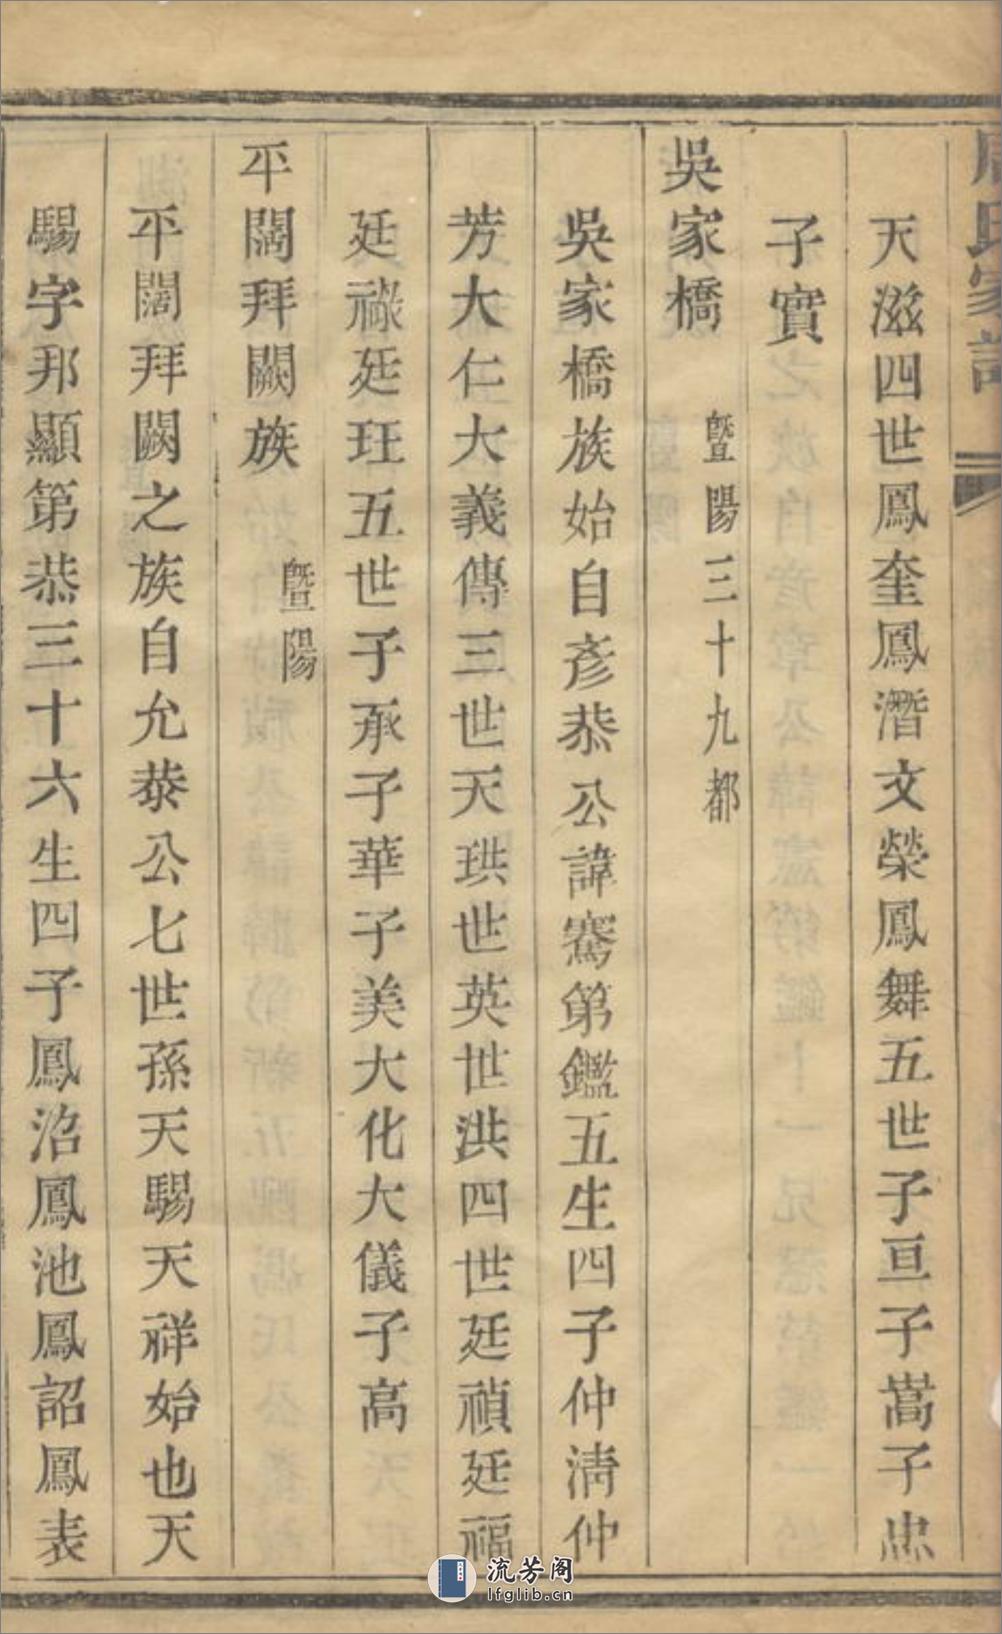 氏家
天滋四世鳳奎鳳潛文榮鳳舞五世子亘子嵩子忠
子實
吳家橋 暨陽三十九都
吳家橋族始自彥恭公諱騫第鑑五生四子仲淸仲
芳大仁大義傳三世天珙世英世洪四世廷禎廷福
廷祿廷玨五世子承子華子美大化大儀子高
平闊拜闕族 暨陽
平闊拜闕之族自允恭公七世孫天賜天祥始也天
賜字邦顯第恭三十六生四子鳳沼鳳池鳳詔鳳表
流芳阁
lfglib.cn